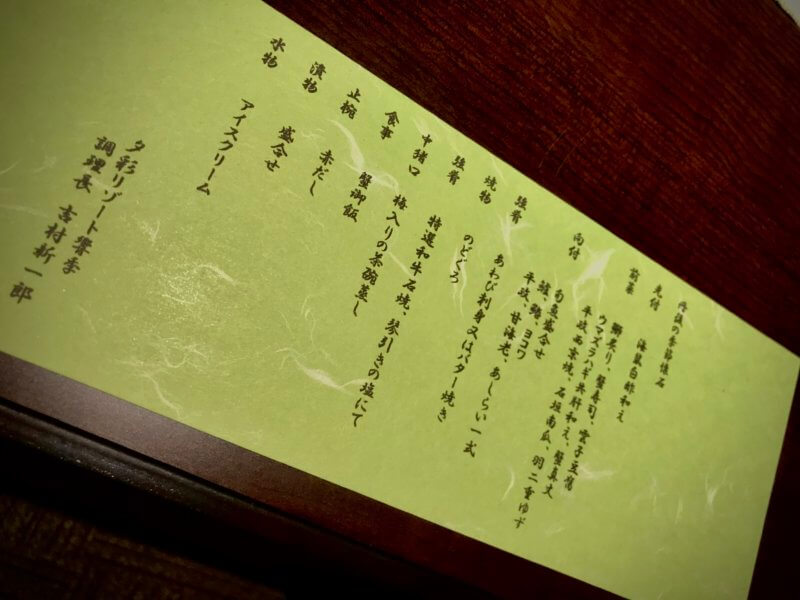 丹後の季節懐石
先付 海鼠白酢和え
前菜 鰤炙り、蟹寿司、雲子豆腐
ウマズラハギ共肝和え、蟹真丈
平政西京焼、石垣南瓜、羽二重ゆず
向付 旬魚盛合せ
鰆、ヨコワ
平政、甘海老、あしらい一式
強肴 あわび刺身又はバター焼き
焼物 のどぐろ
強肴 特選和牛石焼、琴引きの塩にて
中猪口 梅入りの茶碗蒸し
食事 蟹御飯
止椀 赤だし
漬物 盛合せ
水物 アイスクリーム
夕彩リゾート響季
調理長 吉村新一郎